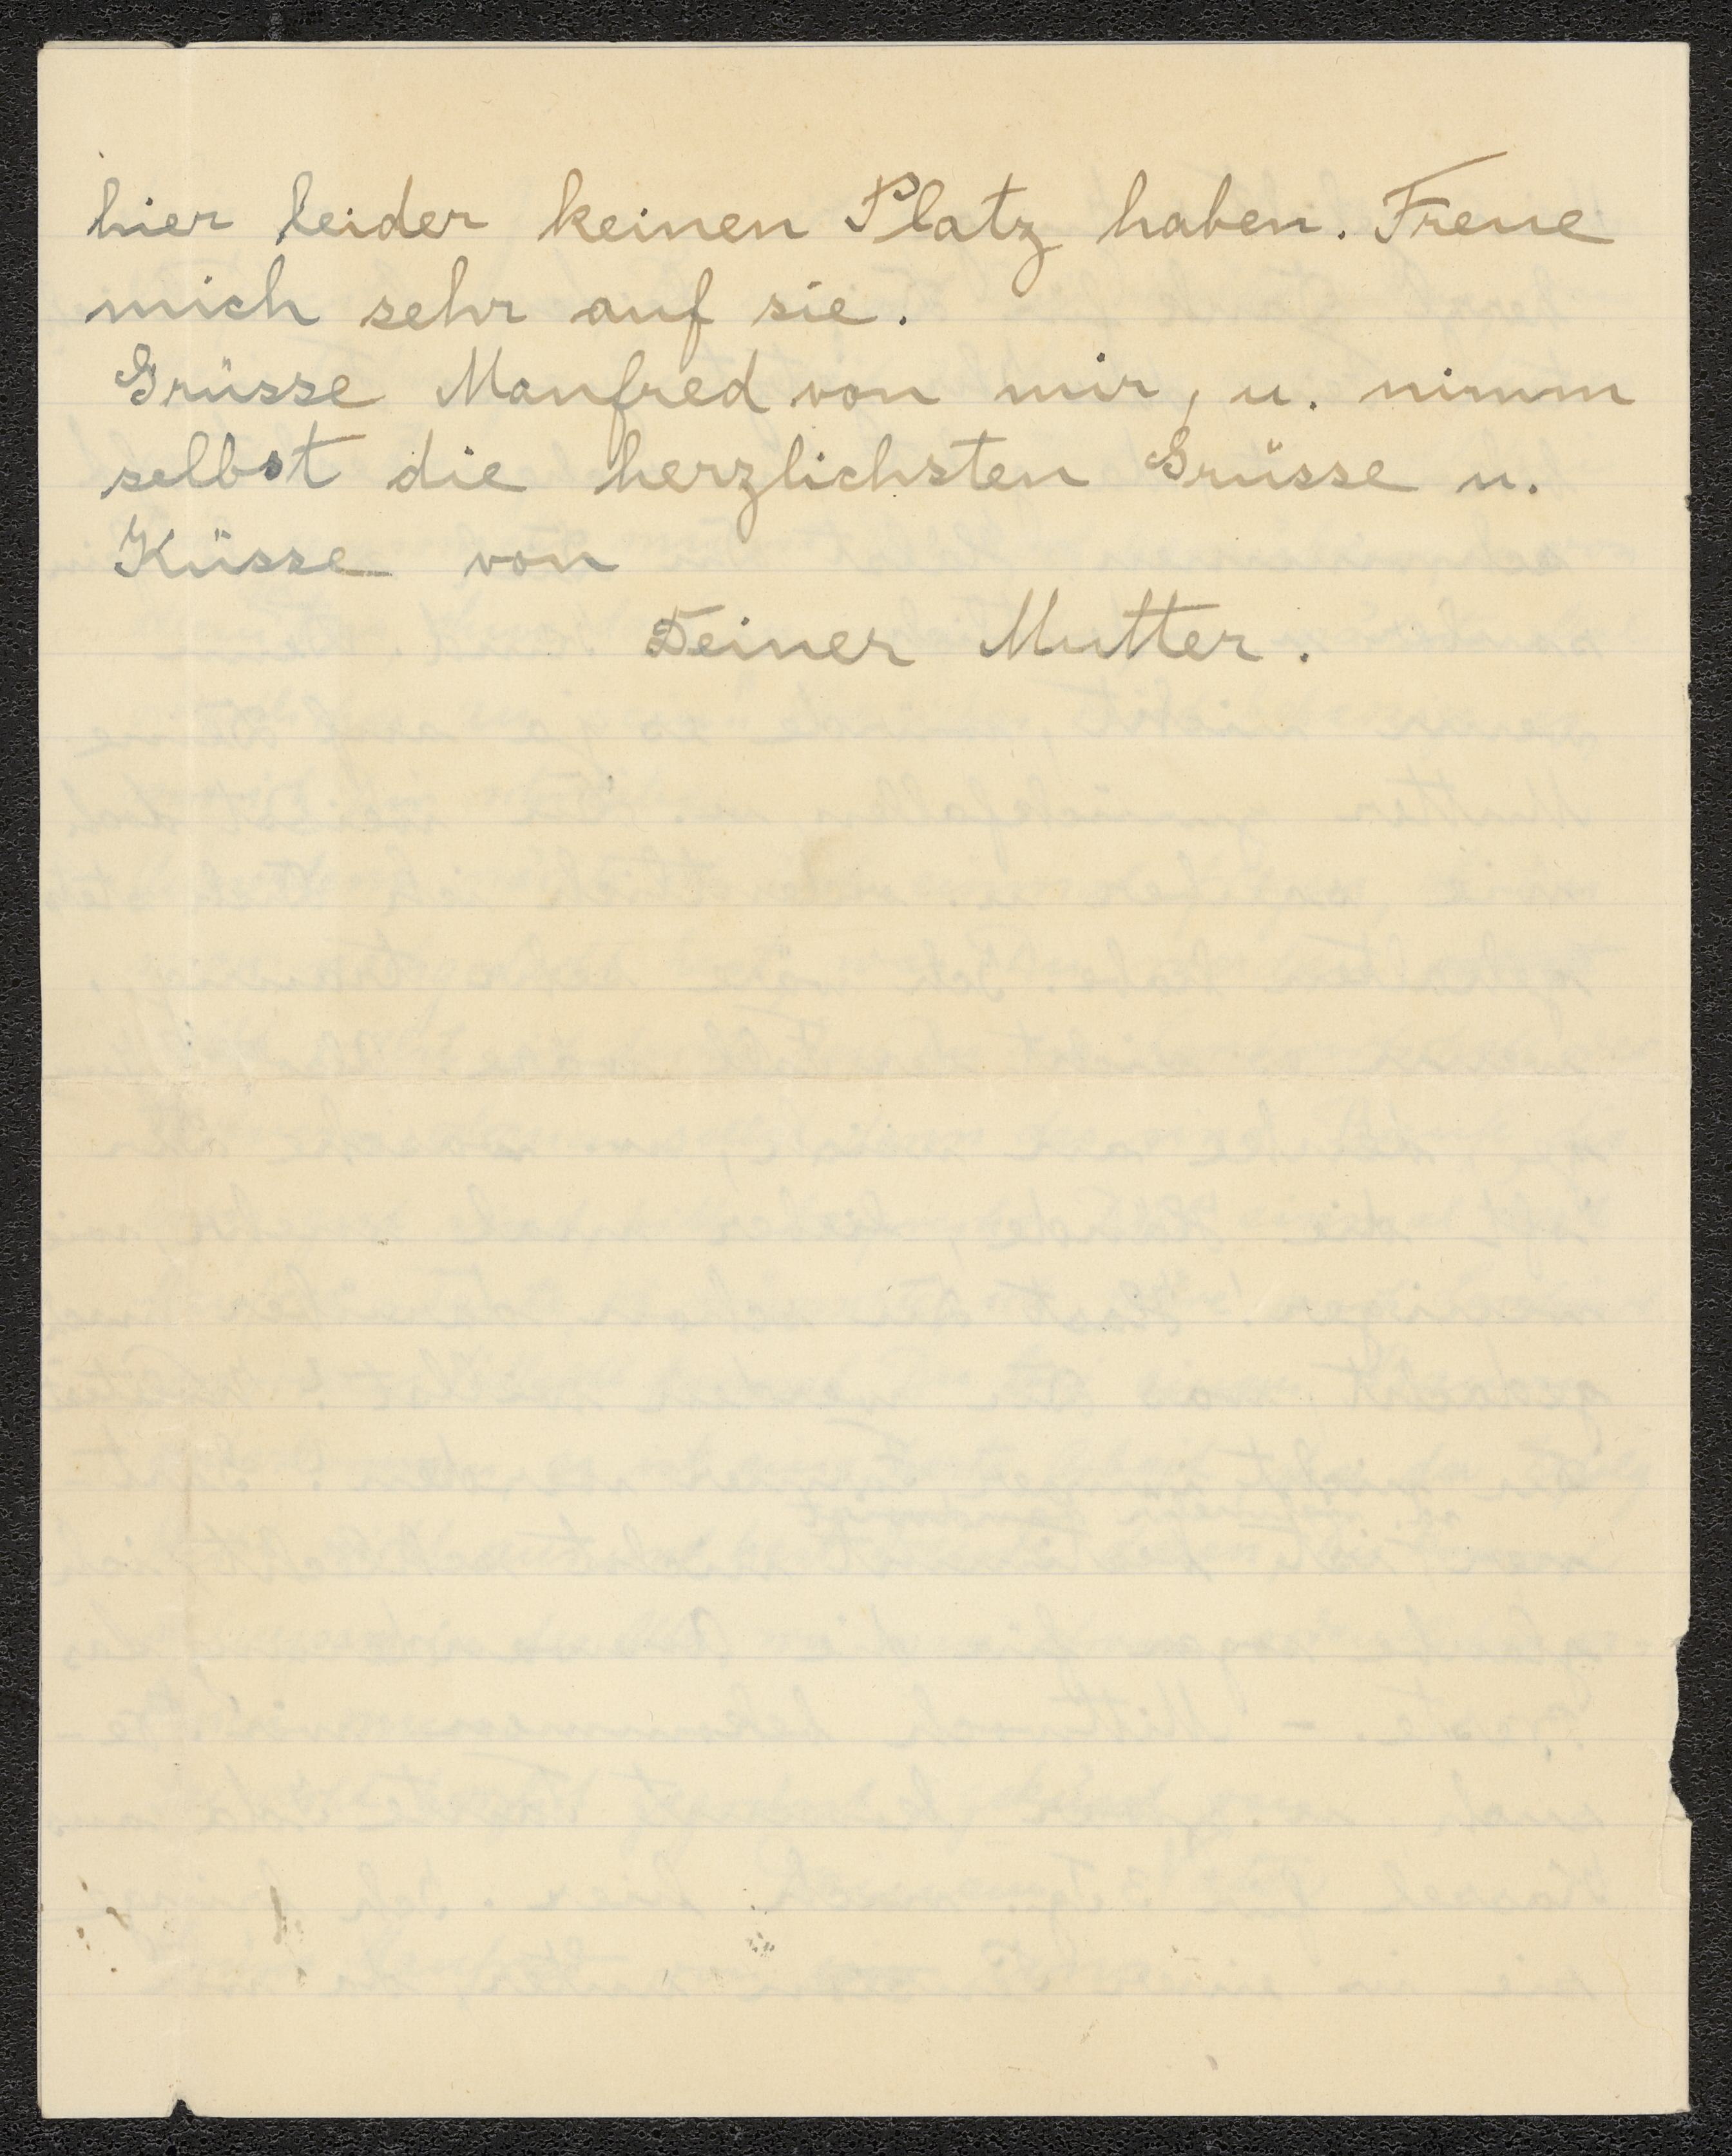 hier leider keinen Platz haben. Freue
mich sehr auf sie.
Grüsse Manfred von mir, u. nimm
selbst die herzlichsten Grüsse u.
Küsse von
Deiner Mutter.